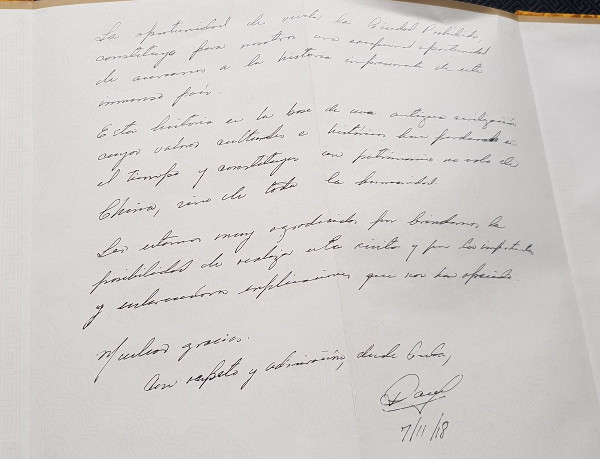 La oportunidad de visitar la Ciudad Prohibida,
constituye para nosotros una excepcional oportunidad
de acercarnos a la historia impresionante de este
inmenso país.
Esta historia es la base de una antigua civilización
cuyos valores culturales e históricos han perdurado en
el tiempo y constituyen un patrimonio no solo de
China, sino de toda la humanidad.
Les estamos muy agradecidos por brindarnos la
posibilidad de realizar esta visita y por las importantes
y esclarecedoras explicaciones que nos ha ofrecido.
Muchas gracias.
Con respeto y admiración, desde Cuba,
7/11/18